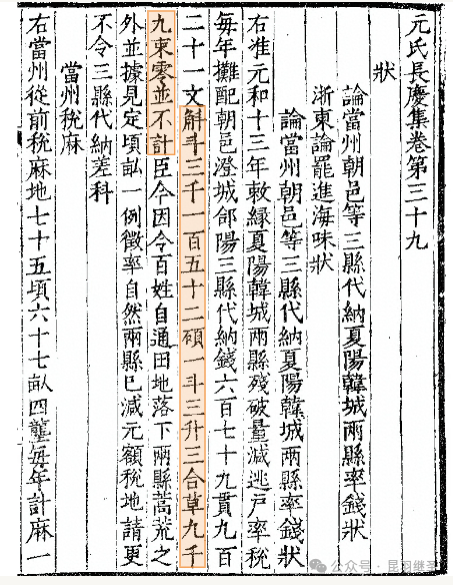 元氏長慶集卷第三十九
狀
論當州朝邑等三縣代納夏陽韓城兩縣率錢狀
浙東論罷進海味狀
論當州朝邑等三縣代納夏陽韓城兩縣率錢狀
右准元和十三年敕緣夏陽韓城兩縣殘破量減逃戶率稅
每年攤配朝邑澄城郃陽三縣代納錢六百七十九貫九百
二十一文斛斗三千一百五十二碩一斗三升三合草九千
九束零並不計臣今因令百姓自通田地落下兩縣蒿荒之
外並據見定頃畝一例徵率自然兩縣已減元額稅地請更
不令三縣代納差科
當州稅麻
右當州從前稅麻地七十五頃六十七畝四壠每年計麻一
公众号 · 昆羽继圣